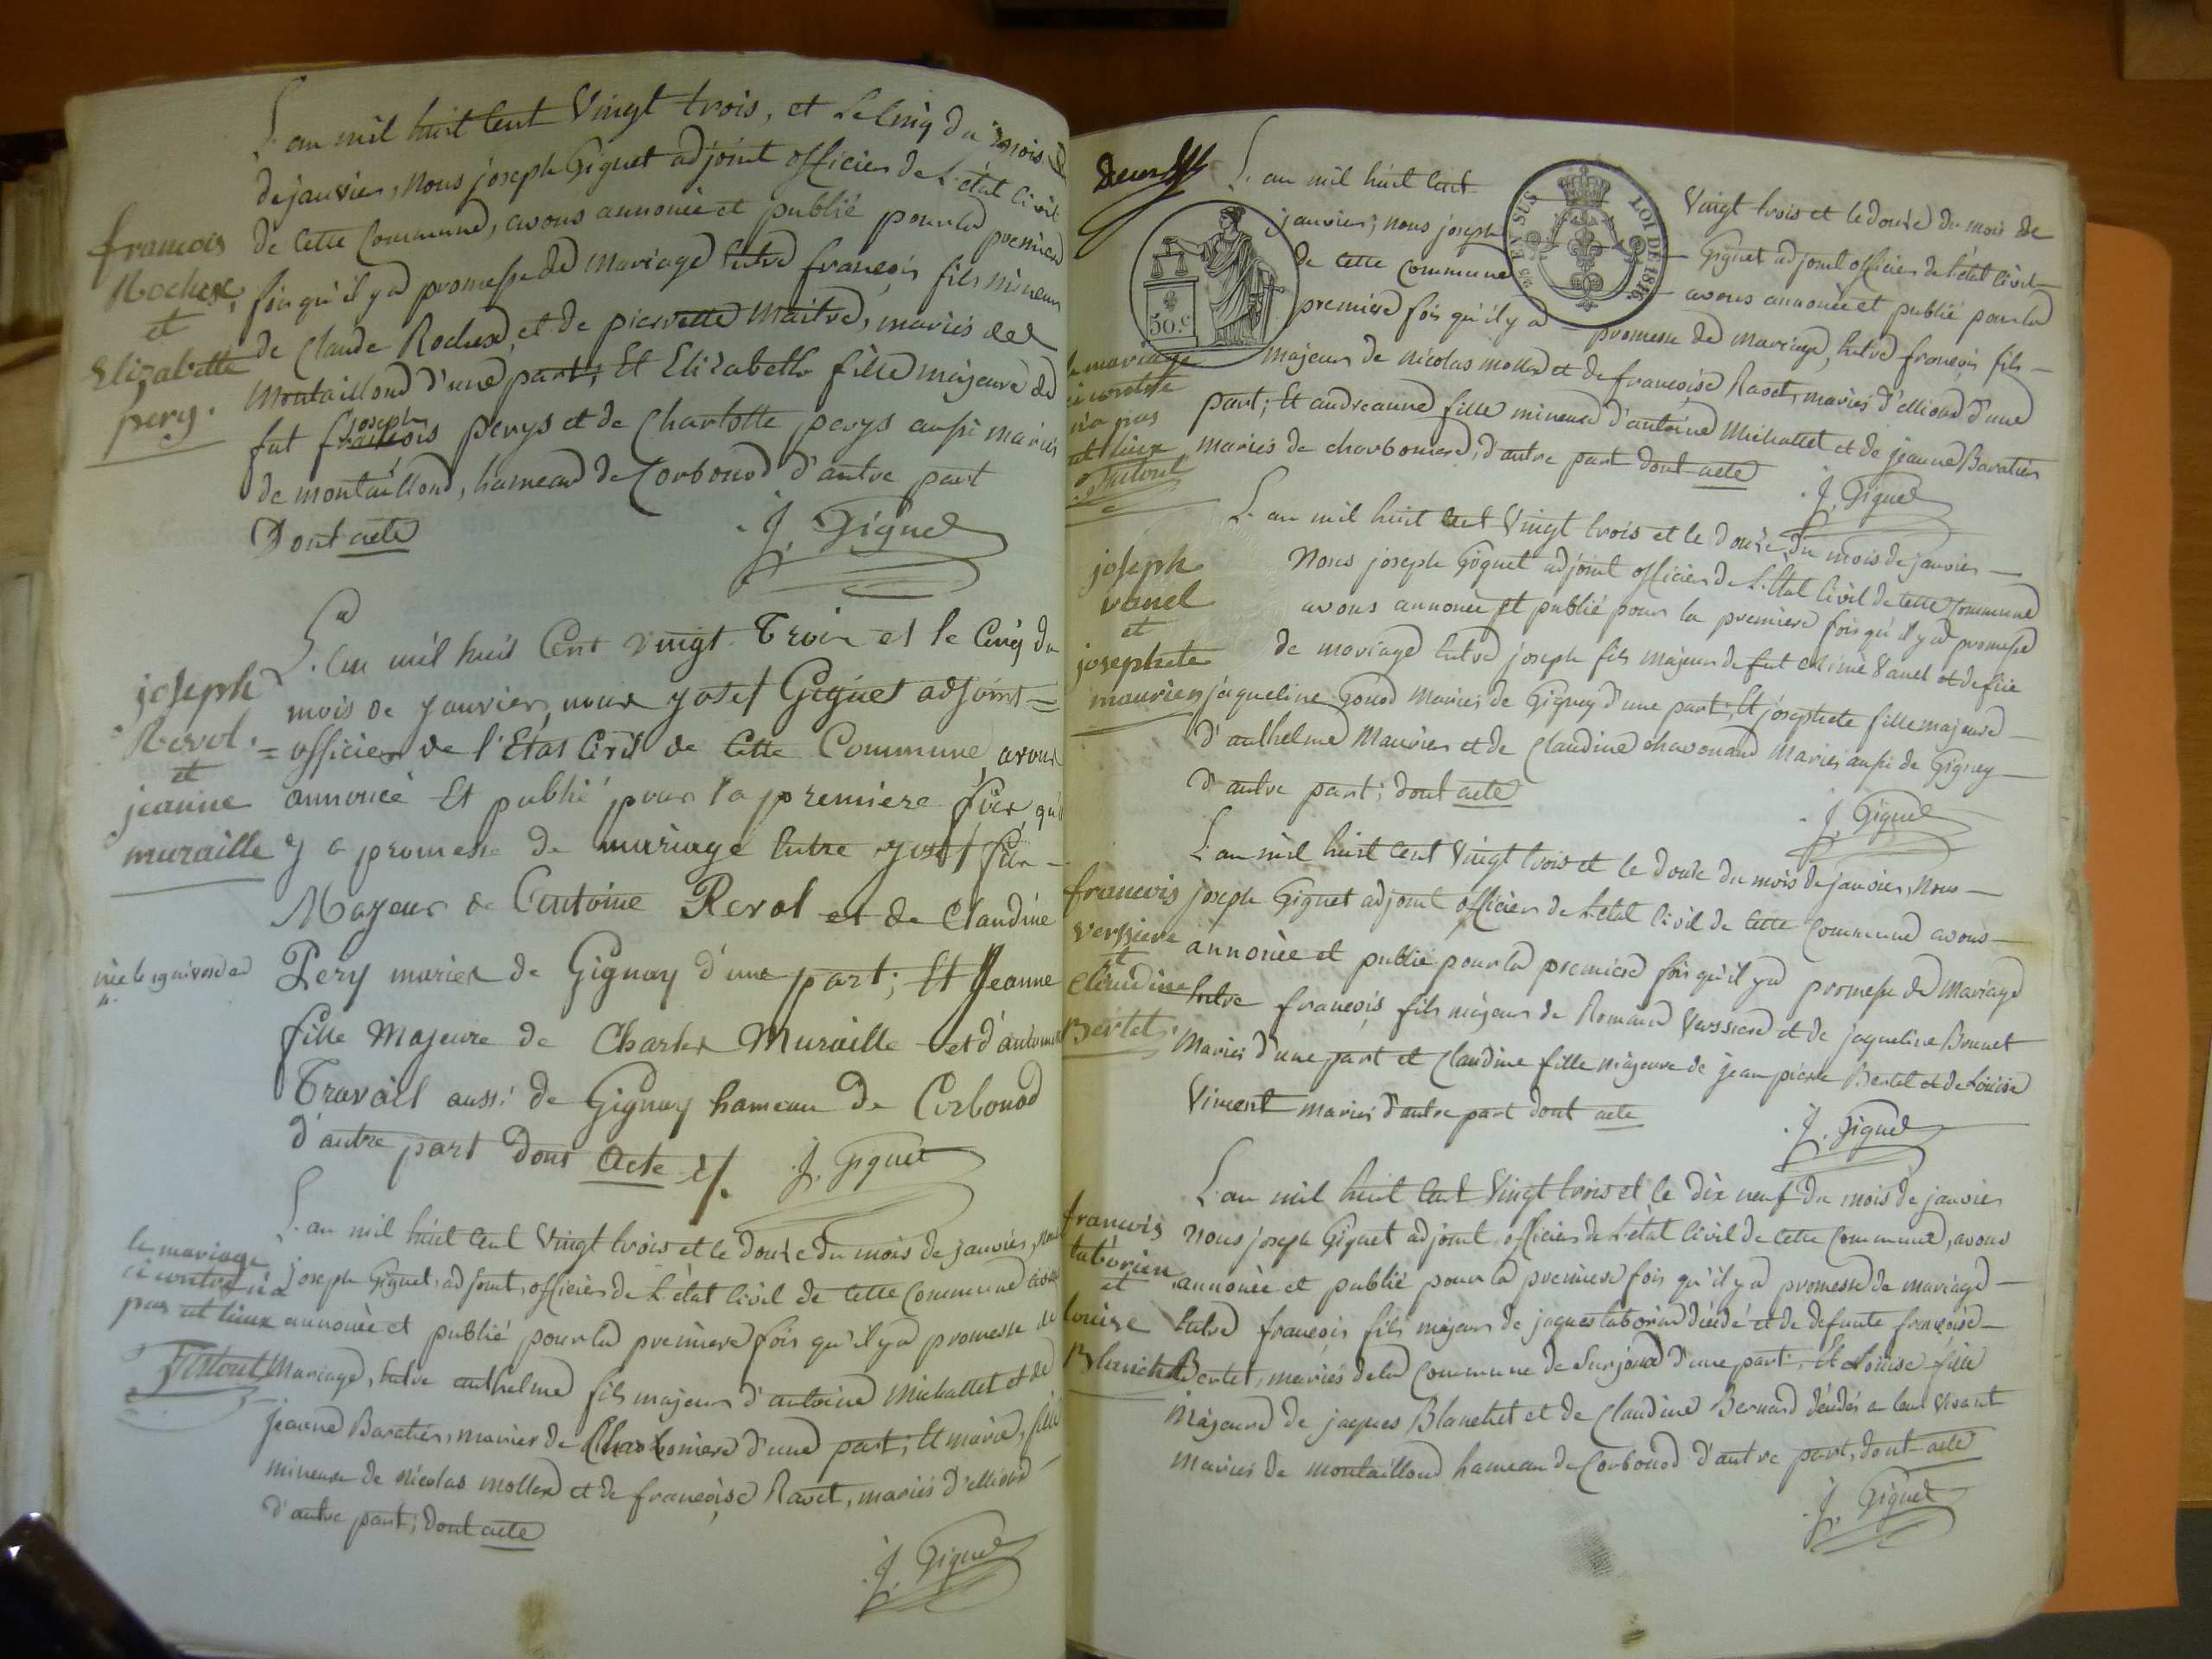 L'an mil huit cent vingt trois, et le cinq du mois
de janvier, nous joseph Giguet adjoint officier de l'état civil
de cette commune, avons annoncé et publié pour la premiere
fois qu'il y a promesse de mariage entre françois fils mineur
de Claude Rochex, et de pierrette Maitre, mariés de
Montailloud d'une part; Et Elizabeth fille majeure de
fut joseph perys et de Charlotte perys aussi mariés
de montailloud, hameau de Corbonod d'autre part
Dont acte
J. Giguet
francois
Rochex
et
Elizabette
pery.
L'an mil huit Cent vingt Trois et le Cinq du
mois de janvier, nous josef Giguet adjoint =
= officier de l'Etat Civil de Cette Commune, avons
annoncé Et publié pour la premiere fois, qu'il
y a promesse de mariage entre josef fils
Majeur de Antoine Revol et de Claudine
Pery mariés de Gignay d'une part; Et Jeanne
fille Majeure de Charles Muraille et d'
Travail aussi de Gignay hameau de Corbonod
d'autre part Dont Acte
J. Giguet
joseph
Revol.
et
jeanne
muraille
née le
L'an mil huit cent vingt trois et le douze du mois de janvier, nous
joseph Giguet, adjoint, officier de l'état civil de cette commune avons
annoncé et publié pour la premiere fois qu'il y a promesse de
Mariage, entre anthelme fils majeur d'antoine Michallet et de
jeanne Baratier, mariés de Charboniere d'une part; Et marie, fille
mineure de nicolas mollex et de françoise Ravet, mariés d'elliond
d'autre part; dont acte
J. Giguet
le mariage
ci contre n'a
pas ut lieux
L'an mil huit cent vingt trois et le douze du mois de
janvier; nous joseph Giguet adjoint officier de l'état civil
de cette commune avons annoncé et publié pour la
premiere fois qu'il y a promesse de mariage, entre françois fils
majeur de nicolas mollex et de françoise Ravet, mariés d'elliond d'une
part; Et andreanne fille mineure d'antoine Michallet et de jeanne Baratier
mariés de charboniere, d'autre part dont acte
J. Giguet
50.c
25 EN SUS
LOI DE 1816
le mariage
ci contre
n'a pas
ut lieux
L'an mil huit cent vingt trois et le douze du mois de janvier
Nous joseph Giguet adjoint officier de l'Etat Civil de cette commune
avons annoncé et publié pour la premiere fois qu'il y a promesse
de mariage entre joseph fils majeur de fut aimé Vanel et de
jaqueline Gonod mariés de Gignay d'une part; Et josephete fille majeure
d'anthelme Maurier et de Claudine chavonand Mariés aussi de Gignay
d'autre part; dont acte
J. Giguet
joseph
vanel
et
josephete
maurier
L'an mil huit cent vingt trois et le douze du mois de janvier, Nous
joseph Giguet adjoint officier de l'état civil de cette commune avons
annoncée et publié pour la premiere fois qu'il y a promesse de mariage
entre françois fils majeur de Romain Verssiere et de jaqueline Brunet
Mariés d'une part et Claudine fille majeure de jean pierre Bertet et de Louise
Vincent mariés d'autre part dont acte
J. Giguet
francois
verssiere
et
Claudine
Bertet.
L'an mil huit cent vingt trois et le dix neuf du mois de janvier
nous joseph Giguet adjoint officier de l'état civil de cette commune, avons
annoncée et publié pour la premiere fois qu'il y a promesse de mariage
entre françois fils majeur de jaques taborin décédé et de defunte françoise
Bertet, mariés de la commune de Surjoud d'une part; Et Louise fille
Majeure de jaques Blanchet et de Claudine Bernard décédés a leur vivant
mariés de montailloud hameau de Corbonod d'autre part, dont acte
J. Giguet
francois
taborin
et
louise
Blanchet